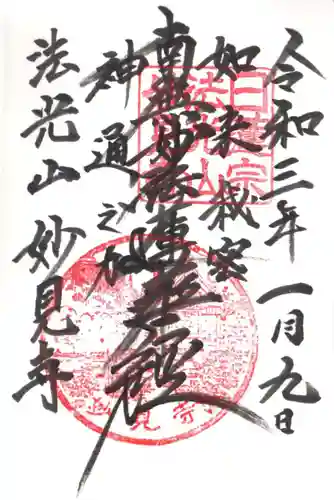 令和三年 一月九日
如来秘密
南無妙法蓮華経
神通之力
法光山 妙見寺
日蓮宗
法光山